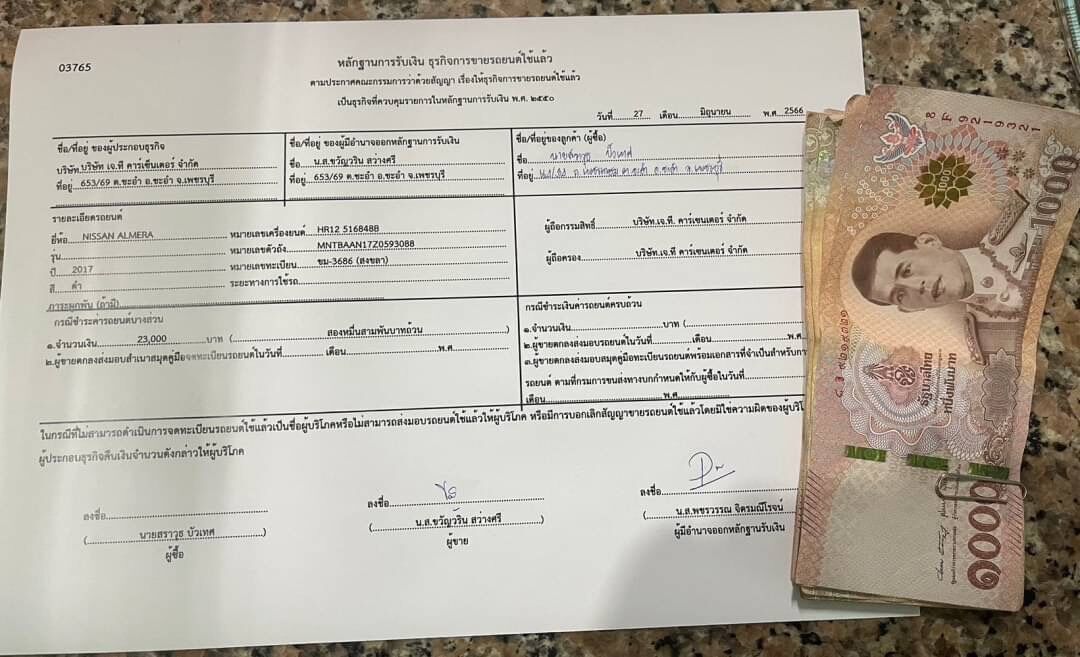 03765
หลักฐานการรับเงิน ธุรกิจการขายรถยนต์ใช้แล้ว
ตามประกาศคณะกรรมการว่าด้วยสัญญา เรื่องให้ธุรกิจการขายรถยนต์ใช้แล้ว
เป็นธุรกิจที่ควบคุมรายการในหลักฐานการรับเงิน พ.ศ. ๒๕๕๐
วันที่ 27 เดือน มิถุนายน พ.ศ. 2566
ชื่อ/ที่อยู่ ของผู้ประกอบธุรกิจ
บริษัท.บริษัท เจ.ที คาร์เซ็นเตอร์ จำกัด
ที่อยู่ 653/69 ต.ชะอำ อ.ชะอำ จ.เพชรบุรี
ชื่อ/ที่อยู่ ของผู้มีอำนาจออกหลักฐานการรับเงิน
ชื่อ น.ส.ขวัญวริน สว่างศรี
ที่อยู่ 653/69 ต.ชะอำ อ.ชะอำ จ.เพชรบุรี
ชื่อ/ที่อยู่ของลูกค้า (ผู้ซื้อ)
ชื่อ นายสราวุธ บัวเทศ
ที่อยู่ ต.ชะอำ อ.ชะอำ จ.เพชรบุรี
รายละเอียดรถยนต์
ยี่ห้อ NISSAN ALMERA หมายเลขเครื่องยนต์ HR12 516848B
รุ่น หมายเลขตัวถัง MNTBAAN17Z0593088
ปี 2017 หมายเลขทะเบียน ขม-3686 (สงขลา)
สี ดำ ระยะทางการใช้รถ
ภาระผูกพัน (ถ้ามี)
ผู้ถือกรรมสิทธิ์ บริษัท.เจ.ที. คาร์เซนเตอร์ จำกัด
ผู้ถือครอง บริษัท.เจ.ที. คาร์เซนเตอร์ จำกัด
กรณีชำระค่ารถยนต์บางส่วน
๑.จำนวนเงิน 23,000 บาท ( สองหมื่นสามพันบาทถ้วน )
๒.ผู้ขายตกลงส่งมอบสำเนาสมุดคู่มือจดทะเบียนรถยนต์ในวันที่ เดือน พ.ศ
กรณีชำระเงินค่ารถยนต์ครบถ้วน
๑.จำนวนเงิน บาท (
๒.ผู้ขายตกลงส่งมอบรถยนต์ในวันที่ เดือน พ.ศ
๓.ผู้ขายตกลงส่งมอบสมุดคู่มือทะเบียนรถยนต์พร้อมเอกสารที่จำเป็นสำหรับการ
รถยนต์ ตามที่กรมการขนส่งทางบกกำหนดให้กับผู้ซื้อในวันที่
เดือน พ.ศ
ในกรณีที่ไม่สามารถดำเนินการจดทะเบียนรถยนต์ใช้แล้วเป็นชื่อผู้บริโภคหรือไม่สามารถส่งมอบรถยนต์ใช้แล้วให้ผู้บริโภค หรือมีการบอกเลิกสัญญาขายรถยนต์ใช้แล้วโดยมิใช่ความผิดของผู้บริโ
ผู้ประกอบธุรกิจคืนเงินจำนวนดังกล่าวให้ผู้บริโภค
ลงชื่อ
( นายสราวุธ บัวเทศ )
ผู้ซื้อ
ลงชื่อ
( น.ส.ขวัญวริน สว่างศรี )
ผู้ขาย
ลงชื่อ
( น.ส.พชรวรรณ จิตรมณีโรจน์
ผู้มีอำนาจออกหลักฐานรับเงิน
8 F 9219321
1000
๘ F ๙๒๑๙๓๒๑
รัฐบาลไทย
หนึ่งพันบาท
๑๐๐๐